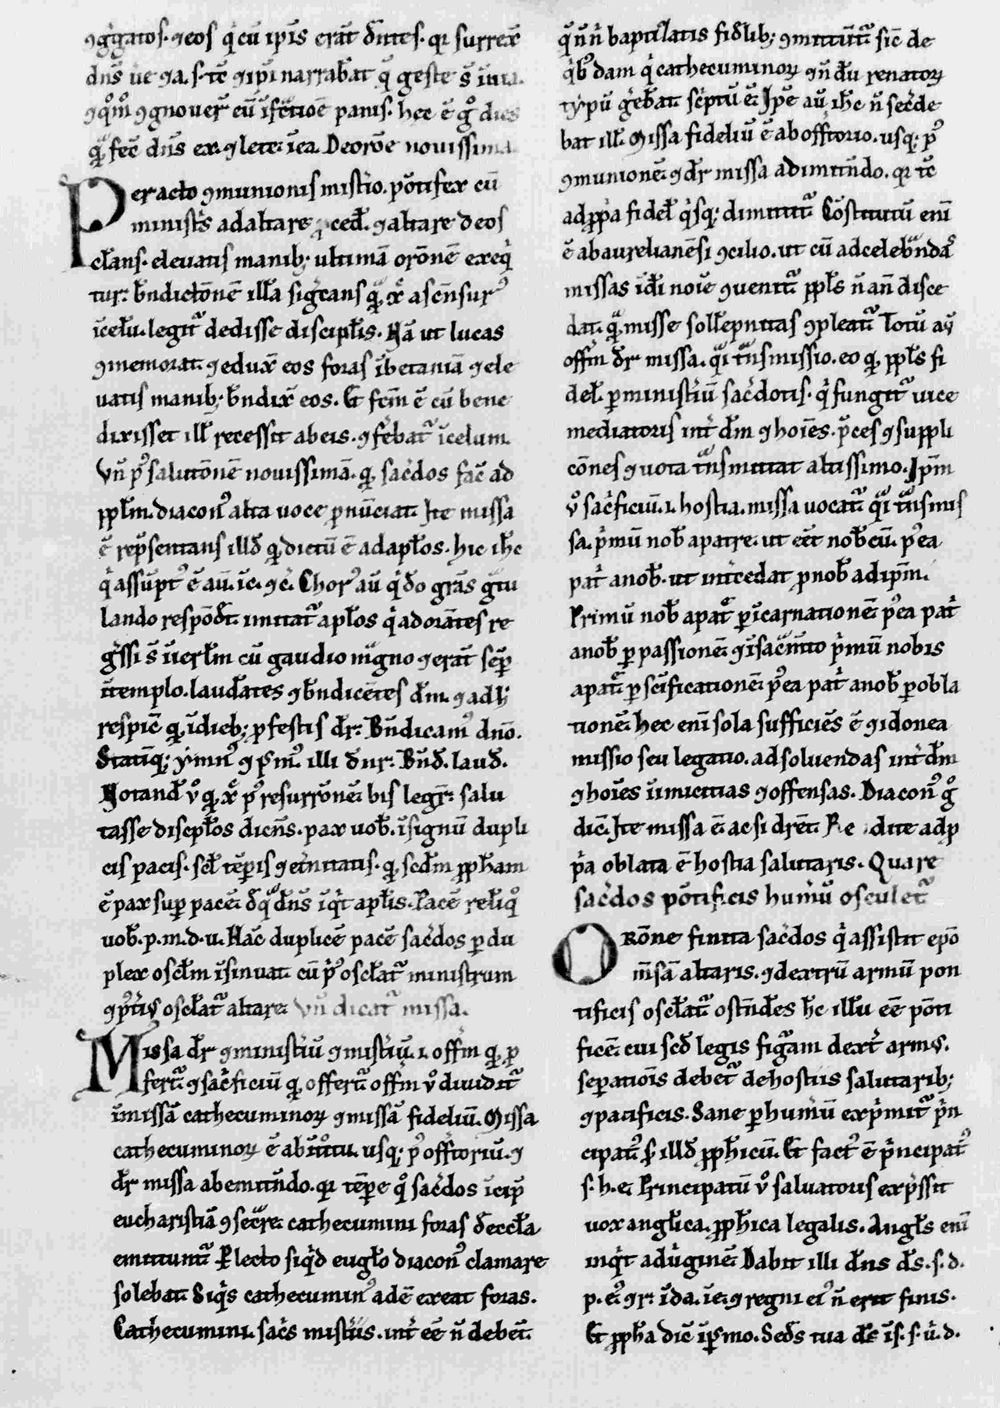 ꝯg̃gatos. ⁊ eos q̇ cū ip̄is erāt d̄ntes. qꝛ surrex̄
dn̄s ũe ⁊ a. s. ⁊ narrab̄at q̄ gesta s̄ in uia.
ꝯgnouer̄ eū ī panis. hec ē g̊ dies
q̄ fec̄ dn̄s ex. De or̄one nouissima
Peracto ꝯmunionis mist̄io. pōtifex cū
minist̄s ad altare ꝓced̄. ⁊ altare deos
cl̄ans. eleuatis manib; ultimā or̄onē exeq̇
tur: b̄ndictōnē illā sig̃cans q̄ xp̄c ascēnsur᷒
ī celū. legit̃ dedisse discipl̄is. Nā ut lucas
ꝯmemorat. ⁊ edux̄ eos foras ī betaniā ⁊ ele
uatis manib; b̄ndix̄ eos. Et fc̄m ē cū bene
dixisset ill̄ recessit ab eis. ⁊ ferebat̃ ī celum.
Vn̄ p᷒ salutōnē nouissimā. q̄ sac̄dos fac̄ ad
ppl̄m. diacon᷒ alta uoce ꝓnūciat. Ite missa
ē rep̄sentans illd̄ q̄ dictū ē ad apl̄os. hic ih̄c
q̇ assūpt᷒ ē a ū. ī c. ⁊ c̄. Chor᷒ au̅ q̇ d̊o grās g̃tu
lando respōd̄t. imitat̃ apl̄os q̇ adorātes re
g̃ssi s̄ ī ierl̄m cū gaudio m̃gno ⁊ erāt sēp̄
ī templo. laudātes ⁊ b̄ndicētes dm̄. ⁊ ad h̄
respic̄ q̄ ī dieb; ꝓfestis dr̄: Bn̄dicam᷒ dn̄o.
Statīq; ymn᷒ illi d̄nr. Bn̄d̄. laud̄.
Notand̄ ṽ q̄ xp̄c p᷒ resurr̄onē bis legr̄ salu
tasse discipl̄os dicn̄s. pax uob̄. ī signū dupli
cis pacis. scl̄ tēp̄is ⁊ et̄nitatis. q̄ scd̄m pph̄am
ē pax sup̄ pacē. dn̄s īq̇t apl̄is. Pacē relīq̊
uob̄. p. m. d. u. Hāc duplicē pacē sac̄dos ꝑ du
plex oscl̄m īsinuat. cū p̃᷒ oscl̄at̃ ministrum
⁊ oscl̄at̃ altare. Vn̄ dicat̃ missa.
Missa dr̄ ⁊ minist̄iū ⁊ mist̄iū .i. offm̄ q̄ ꝓ
fert̃ ⁊ sac̄ficiū q̄ offert̃ offm̄ ṽ diuidit̃
ī missā cathecuminoꝝ ⁊ missā fideliū. Missa
cathecuminoꝝ ē ab ītroitu. usq; p᷒ offtoriū. ⁊
dr̄ missa ab emittn̄do. qꝛ tēpe q̊ sac̄dos īcip̄
eucharistiā ꝯsecr̄e. cathecumini foras d̄ eccl̄a
emittunt̃. P̄lecto siq̇d eugl̄o diacon᷒ clamare
solebat. Siq̇s cathecumin᷒ adē exeat foras.
Cathecumini. sac̄s mist̄iis. int̄ eē n̄ debet.
q̄ n̄n̄ baptizatis fidl̄ib; ꝯmittūt̃ sic̄ de
q̇b᷒dam q̇ cathecuminoꝝ ⁊ n̄du renatoꝝ
typū g̃eb̄at. sc̄ptū ē. Ip̄e au̅ ih̄c n̄ sec̄de
bat ill̄. Missa fideliū ē ab offtorio. usq; p᷒
ꝯmunionē ⁊ dr̄ missa a dimittn̄do. qꝛ tc̄
ad ꝓp̃a fidel̄ q̇sq; dimittit̃. Cōstitutū enī
ē ab aurelianēsi ꝯcilio. ut cū ad celebn̄dā
missas ī di noīe ꝯuentū ppl̄s n̄ an̄ disce
dat. q̄ misse soll̄epnitas ꝯpleat̃. Totū au̅
offm̄ dr̄ missa. q̃i tñsmissio. eo q̄ ppl̄s fi
del̄ ꝑ minist̄iū sac̄dotis. q̇ fungit̃ uice
mediatoris int̄ dm̄ ⁊ hoīes. p̄ces ⁊ suppli
cōnes ⁊ uota tñsmittat altissimo. Ip̄m
ṽ sac̄ficiū .i. hostia. missa uocat̃ q̃i tñsmis
sa. p̃mū nob̄ a patre. ut eēt nob̄cū. p᷒ea
pat̃ a nob̄. ut intcedat ꝓ nob̄ ad ip̄m.
Primū nob̄ a pat̃ ꝑ īcarnationē. p᷒ea pat̃
a nob̄ ꝑ passionē. ⁊ ī sac̃mto p̃mū nobis
a pat̃ ꝑ sc̄ificationē p᷒ea pat̃ a nob̄ ꝑ obla
tionē. hec enī sola sufficiēs ē ⁊ idonea
missio seu legatio. ad soluendas int̄ dm̄
⁊ hoīes īimicitias ⁊ offensas. Diacon᷒ g̊
dic̄. Ite missa ē. ac si dr̄et. Redite ad ꝓ
p̃a oblata ē hostia salutaris. Quare
sac̄dos pōtificis humū osculet̃
Orōne finita sac̄dos q̇ assistit ep̄o
ī m̄sā altaris. ⁊ dextrū armū pon
tificis oscl̄at̃. ostn̄des h̄c illū eē pōti
ficē. cui scd̄ legis fig̃am dext̃ arm᷒.
sepatiōis debet̃ de hostiis salutarib;
⁊ pacificis. Sane ꝑ humū exp̃mit̃ p̃n
cipat᷒. s̄ illd̄ pph̄icū. Et fact᷒ ē p̃ncipat᷒
s. h. e. Principatū ṽ saluatoris exp̃ssit
uox anglica. pph̄ica legalis. Angl̄s enī
inq̇t ad ṽginē. Dabit illi dn̄s ds̄. s. d.
p. e᷒. ⁊ r. ī da. ī e. ⁊ regni ei᷒ n̄ erit finis.
Et pph̄a dic̄ ī ps̄mo. Sed̄s tua ds̄ ī s. s. ū. d.